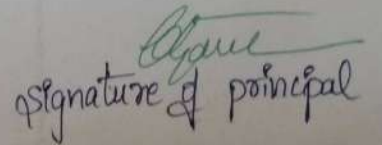 signature of principal